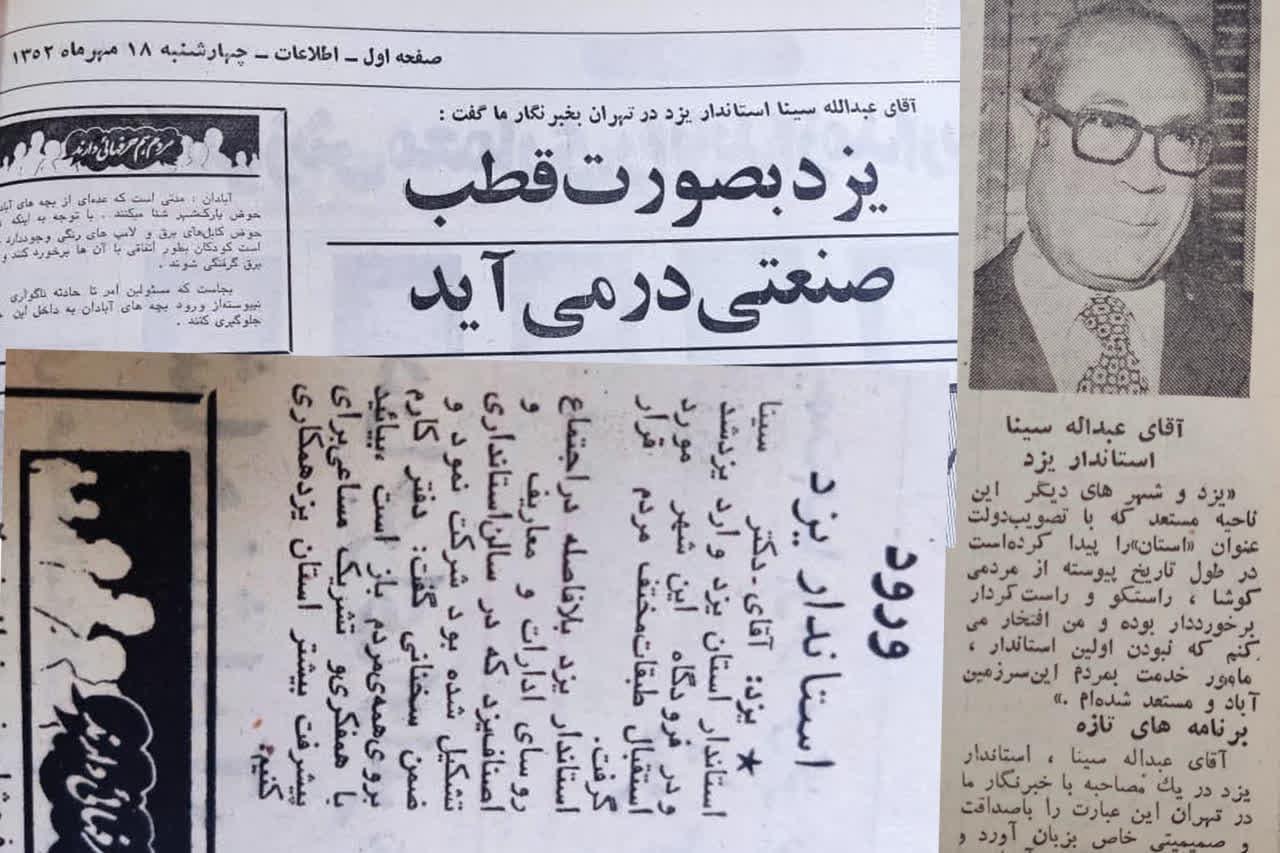 صفحه اول ــ اطلاعات ــ چهارشنبه ۱۸ مهرماه ۱۳۵۲
آقای عبدالله سینا استاندار یزد در تهران بخبرنگار ما گفت :
یزد بصورت قطب
صنعتی درمی آید
مردم هم حرفهائی دارند
آبادان : مدتی است که عده‌ای از بچه های
حوض پارک‌شهر شنا میکنند . با توجه به اینکه
حوض کابل‌های برق و لامپ های رنگی وجود دارد
است کودکان بطور اتفاقی با آن ها برخورد کنند و
برق گرفتگی شوند .
بجاست که مسئولین امر تا حادثه ناگواری
نپیوسته‌از ورود بچه های آبادان به داخل این
جلوگیری کنند .
ورود
استاندار یزد
★ یزد: آقای-دکتر سینا
استاندار استان یزد وارد یزدشد
و در فرودگاه این شهر مورد
استقبال طبقات‌مختف مردم قرار
گرفت.
استاندار یزد بلافاصله دراجتماع
روسای ادارات و معاریف و
اصناف‌یزد که در سالن‌استانداری
تشکیل شده بود شرکت نمود و
ضمن سخنانی گفت: دفتر کارم
بروی‌همه‌ی‌مردم باز است ،بیائید
با همفکری‌و تشریک مساعی‌برای
پیشرفت بیشتر استان یزدهمکاری
کنیم.
آقای عبداله سینا
استاندار یزد
«یزد و شهر های دیگر این
ناحیه مستعد که با تصویب‌دولت
عنوان «استان»را پیدا کرده‌است
در طول تاریخ پیوسته از مردمی
کوشا ، راستگو و راست‌کردار
برخورددار بوده و من افتخار می
کنم که نبودن اولین استاندار ،
مامور خدمت بمردم این‌سرزمین
آباد و مستعد شده‌ام .»
برنامه های تازه
آقای عبداله سینا ، استاندار
یزد در یك مصاحبه با خبرنگار ما
در تهران این عبارت را باصداقت
و صمیمیتی خاص بزبان آورد و